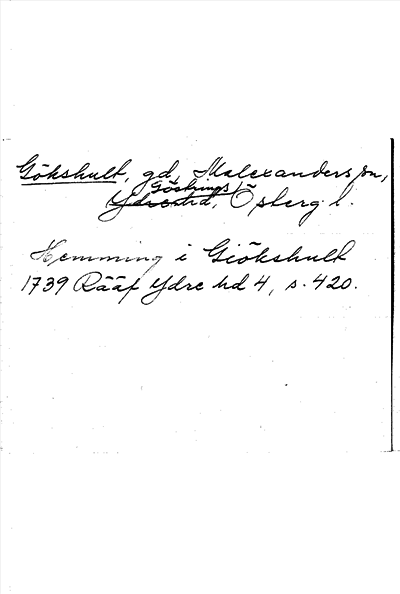 Gökshult, gd, Malexanders sn,
Göstrings
Ydre hd, Öpberg l.
Hemming i Giökshult
1739 Rääf Ydre hd 4, s. 420.